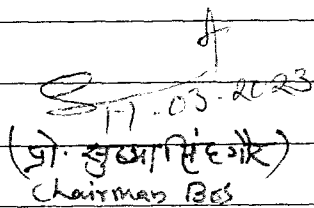 17.03.2023
(प्रो. सुषमा सिंह गौर)
Chairman BOS